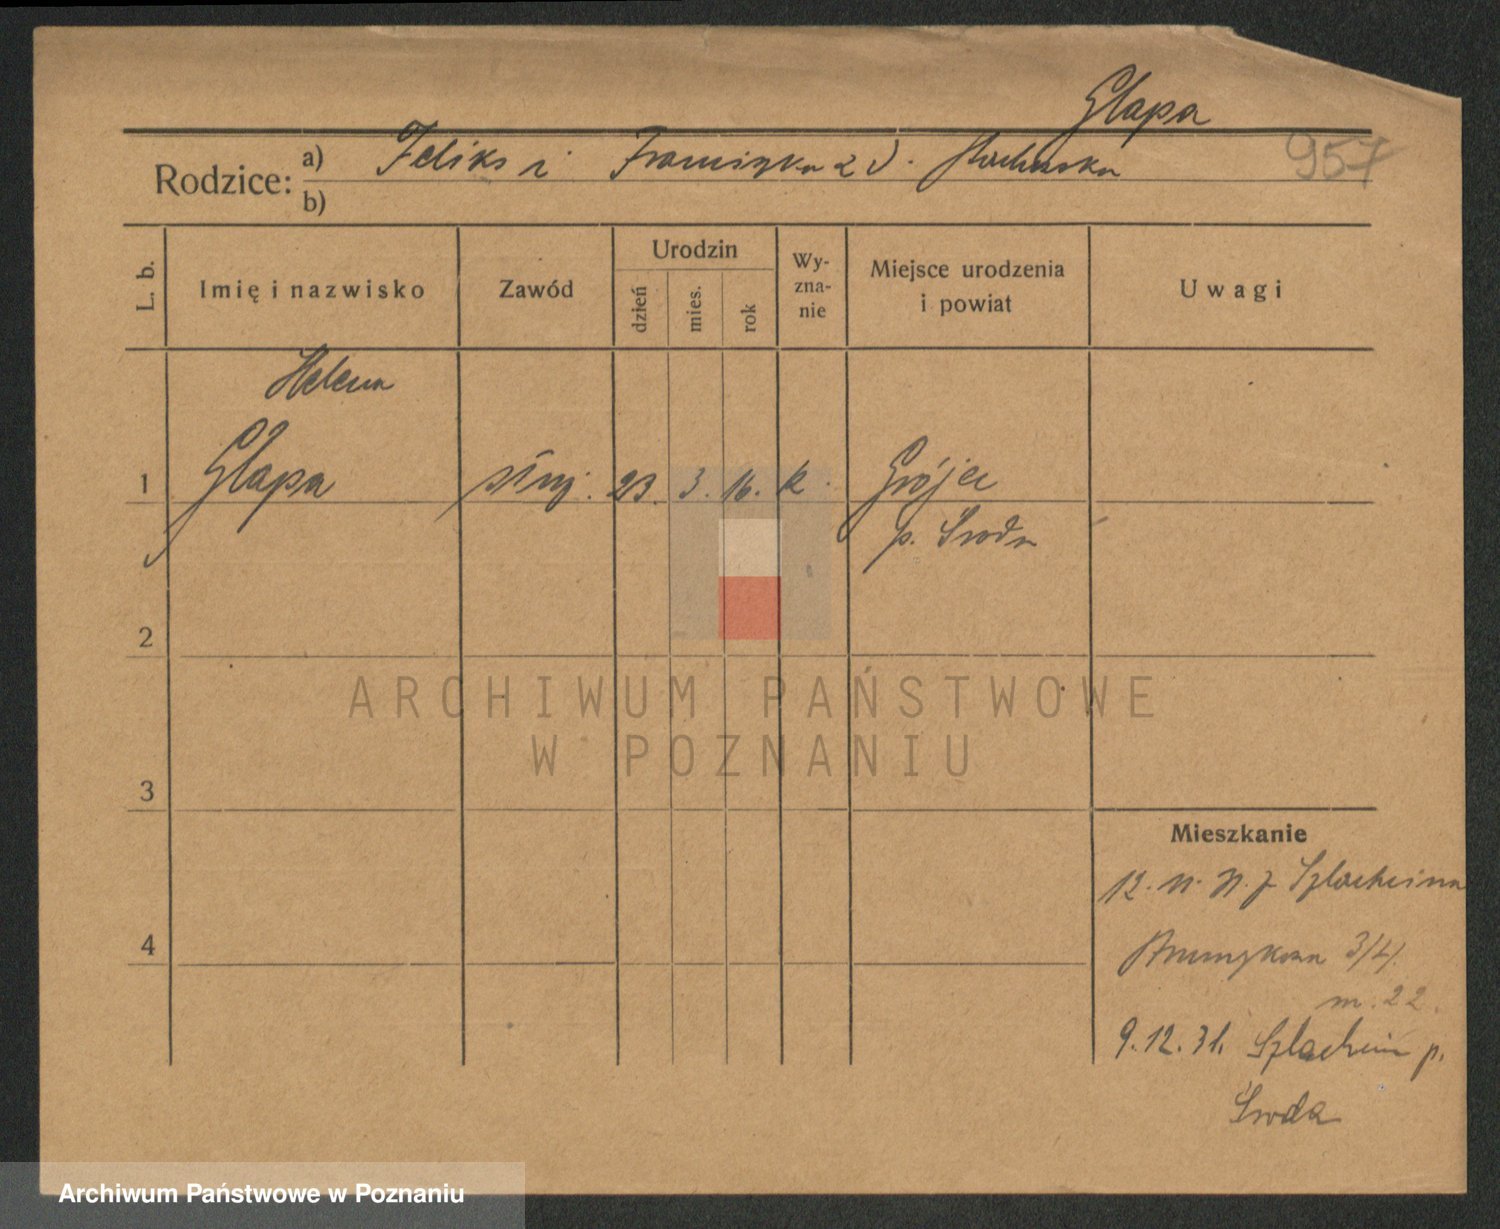 Glapa
Rodzice: a) Feliks i Franciszka z d.
957
b)
L. b.
Imię i nazwisko
Zawód
Urodzin
dzień
mies.
rok
Wy-
zna-
nie
Miejsce urodzenia
i powiat
Uwagi
Helena
1 Glapa służ. 23. 3. 16. k. Grójec
p. Środa
2
3
4
Mieszkanie
12. 11. 31. z Szlachcina
3/4.
m. 22.
9.12.31. Szlachcin p.
Środa
ARCHIWUM PAŃSTWOWE
W POZNANIU
Archiwum Państwowe w Poznaniu